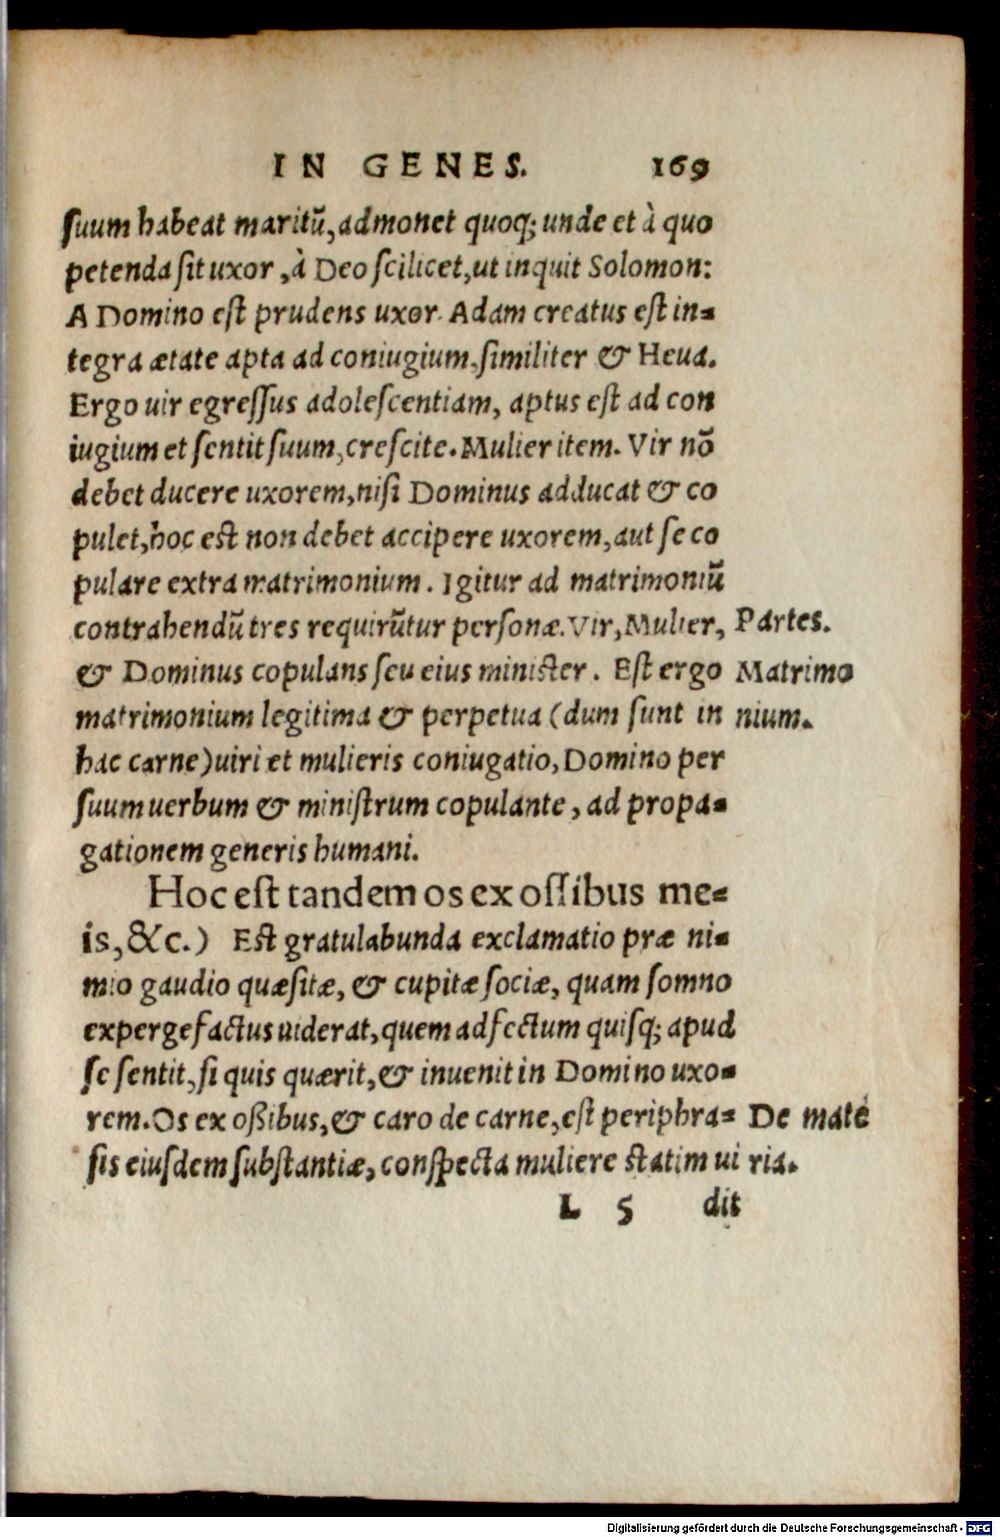 IN GENES. 169
suum habeat maritū, admonet quoq; unde et à quo
petenda sit uxor, à Deo scilicet, ut inquit Solomon:
A Domino est prudens uxor. Adam creatus est in-
tegra ætate apta ad coniugium, similiter & Heua.
Ergo uir egressus adolescentiam, aptus est ad con
iugium et sentit suum, crescite. Mulier item. Vir nō
debet ducere uxorem, nisi Dominus adducat & co
pulet, hoc est non debet accipere uxorem, aut se co
pulare extra matrimonium. Igitur ad matrimoniū
contrahendū tres requirūtur personæ. Vir, Mulier,
Partes.
& Dominus copulans seu eius minister. Est ergo
Matrimo
matrimonium legitima & perpetua (dum sunt in
nium.
hac carne) uiri et mulieris coniugatio, Domino per
suum uerbum & ministrum copulante, ad propa-
gationem generis humani.
Hoc est tandem os ex ossibus me-
is, &c.) Est gratulabunda exclamatio præ ni-
mio gaudio quæsitæ, & cupitæ sociæ, quam somno
expergefactus uiderat, quem adfectum quisq; apud
se sentit, si quis quærit, & inuenit in Domino uxo-
rem. Os ex oßibus, & caro de carne, est periphra-
De mate
sis eiusdem substantiæ, conspecta muliere statim ui
ria.
L 5 dit
Digitalisierung gefördert durch die Deutsche Forschungsgemeinschaft - DFG